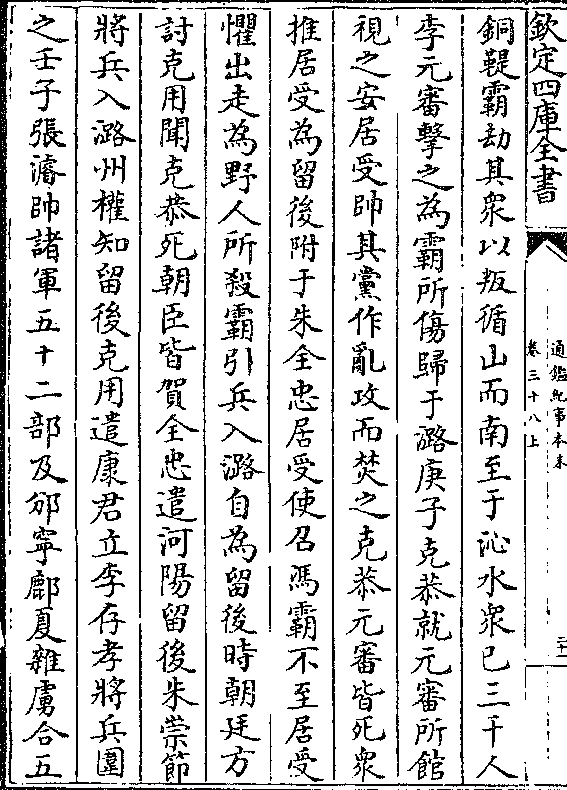 欽定四庫全書
通鑑紀事本末
卷三十八上
銅鞮霸劫其衆以叛循山而南至于沁水衆已三千人
李元審擊之為霸所傷歸于潞庚子克恭就元審所館
視之安居受帥其黨作亂攻而焚之克恭元審皆死衆
推居受為留後附于朱全忠居受使召馮霸不至居受
懼出走為野人所殺霸引兵入潞自為留後時朝廷方
討克用聞克恭死朝臣皆賀全忠遣河陽留後朱崇節
將兵入潞州權知留後克用遣康君立李存孝將兵圍
之壬子張濬帥諸軍五十二部及邠寧鄜夏雜虜合五